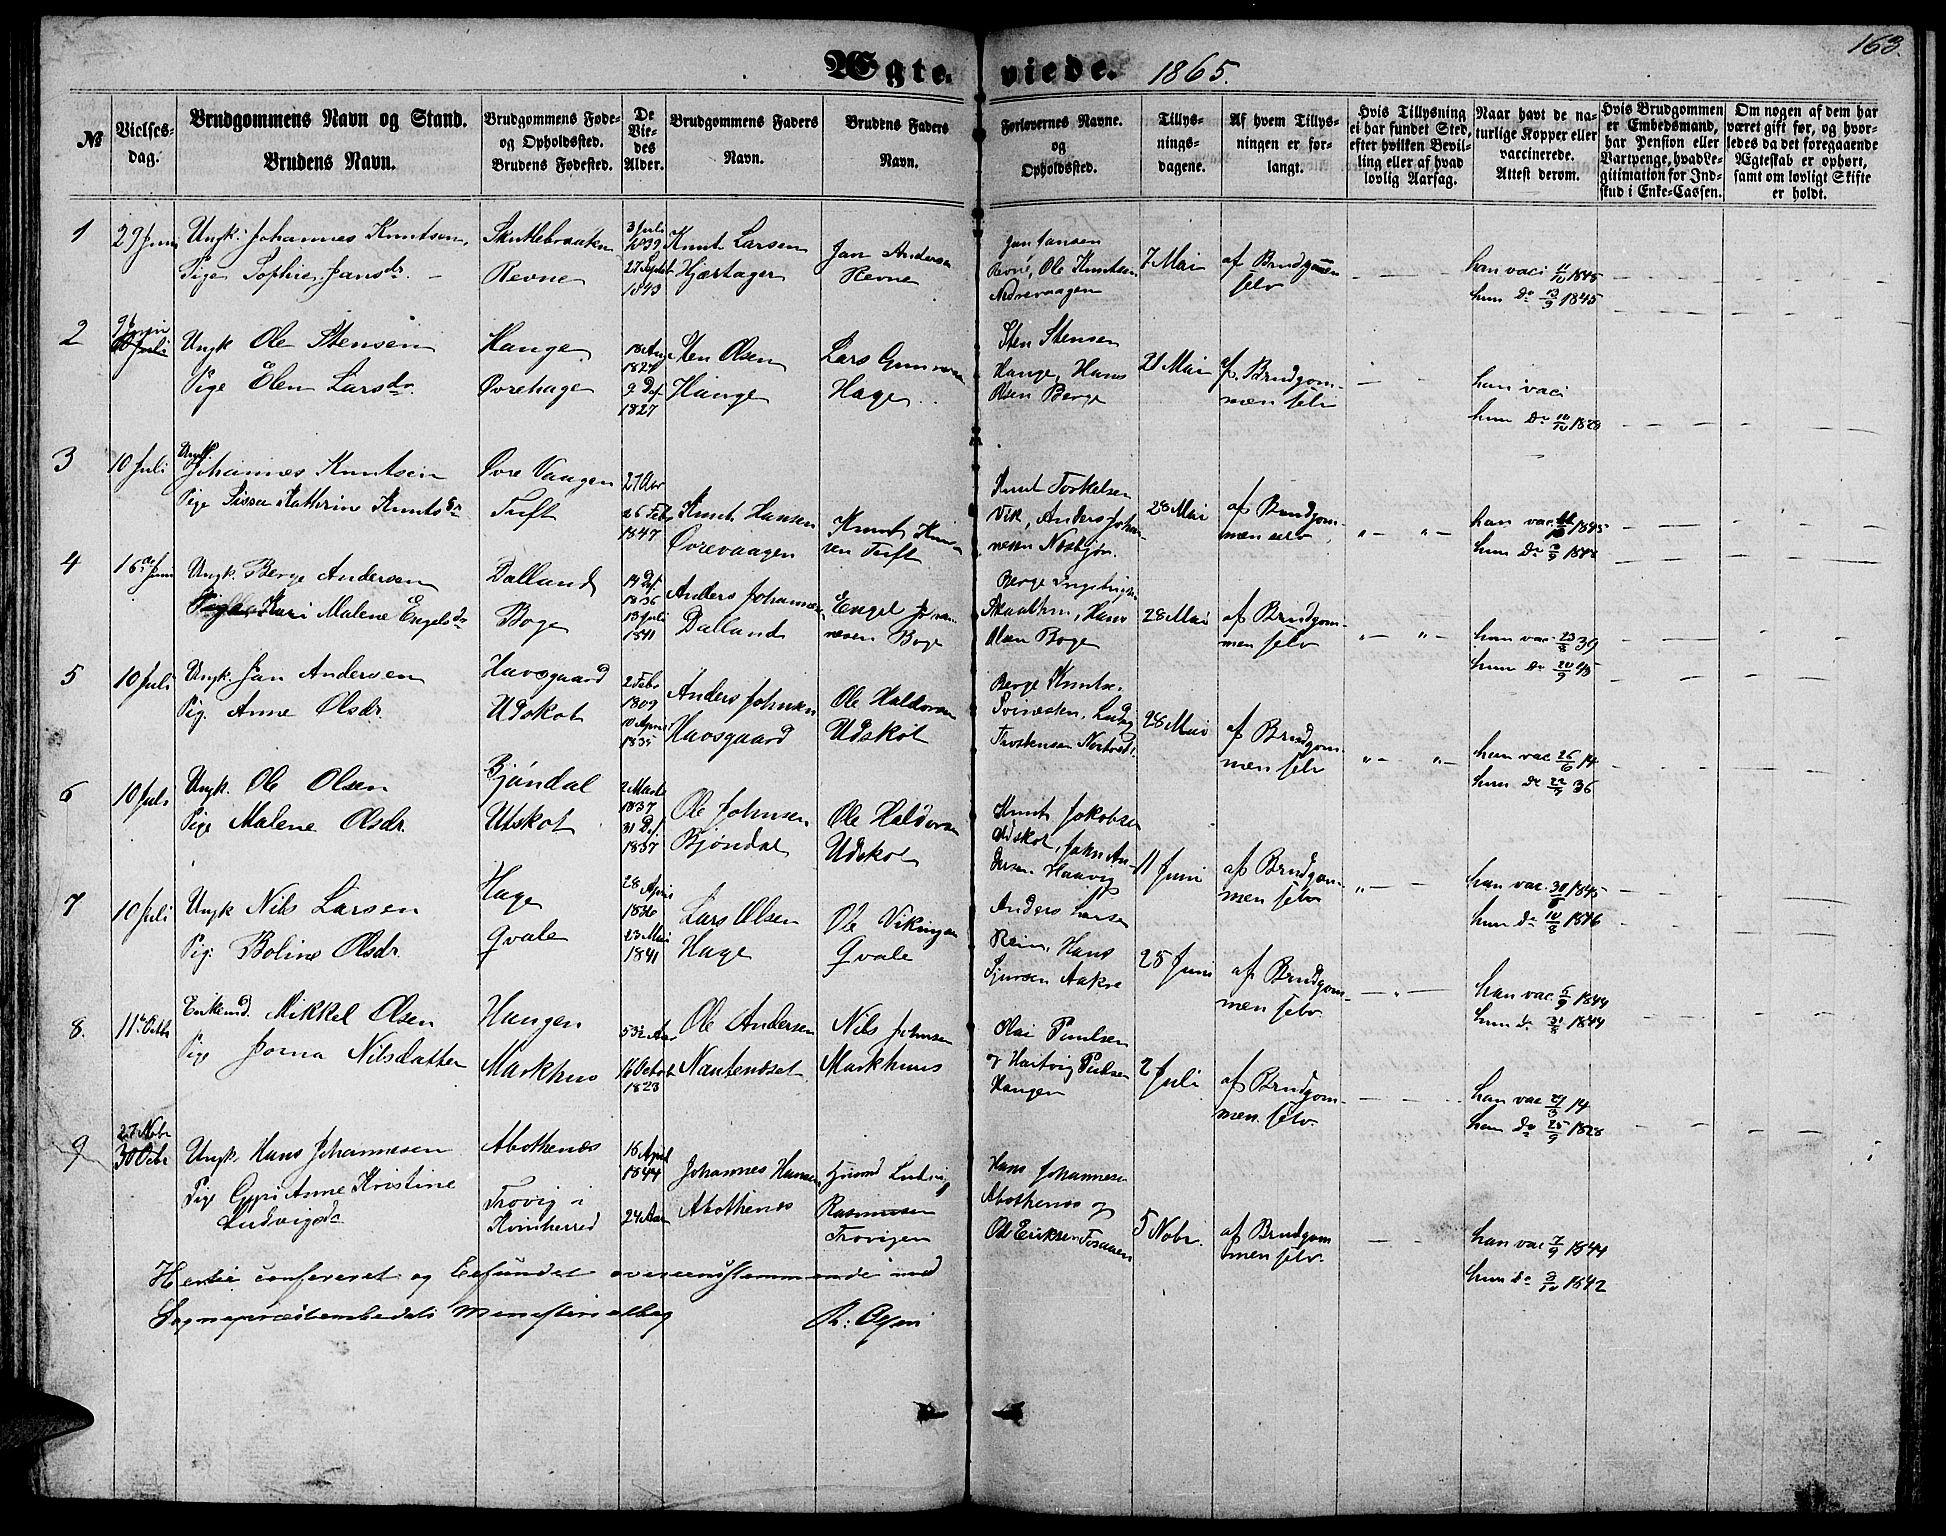 163.
Ægte-viede. 1865.
№
Vielses-dag.
Brudgommens Navn og Stand.
Brudens Navn.
Brudgommens Føde- og Opholdssted.
Brudens Fødested.
De Viedes Alder.
Brudgommens Faders Navn.
Brudens Faders Navn.
Forlovernes Navne. og Opholdssted.
Tillysningsdagene.
Af hvem Tillysningen er forlangt.
Hvis Tillysning ei har fundet Sted, efter hvilken Bevilling eller af hvad lovlig Aarsag.
Naar havt de naturlige Kopper eller vaccinerede. Attest derom.
Hvis Brudgommen er Embedsmand, har Pension eller Vartpenge, hvad Legitimation for Indskud i Enke-Cassen.
Om nogen af dem har været gift før, og hvorledes da det foregaaende Ægteskab er ophørt, samt om lovligt Skifte er holdt.
1 29 Juni Ungk: Johannes Knutsen, Skutlebraaken 3 Juli 1839 Knut Larsen Jan Andersen Jan Jansen
Pige Sophie Jansdr. Revne 27 Septbr 1843 Hjærtager Revne Revne, Ole Knutsen Nedrevaagen
7 Mai af Brudgommen selv han vaci 11/10 1845
hun do 13/9 1845
2 9 Juni Ungk Ole Stensen Hauge 18 Aug 1827 Sten Olsen Lars Sten Stensen
Pige Elen Larsdr. Øvrehage 9 Df. 1827 Hauge Hage Hauge, Hans Olsen Berge
21 Mai af Brudgommen selv han vaci
hun do 10/10 1829
3 10 Juli Ungk Johannes Knutsen Øvre Vaagen 27 Aar Knut Hansen Knut Knutsen Knut Torkelsen
Pige Sissa Kathrine Knutsdr Tuft 26 Febr 1847 Øvrevaagen Tuft Vik, Anders Johannesen Nesbjørn
28 Mai af Brudgommen selv han vac. 1845
hun do
4 16de Juni Ungk. Berge Andersen Dalland 14 Df. 1836 Anders Johannesen Engel Berge
Kari Malene Engelsdr Boge 13 Juli 1841 Dalland Boge Hans Olsen Boge
28 Mai af Brudgommen selv han vac. 23/8 39
hun do 20/9 45
5 10 Juli Ungk. Jan Andersen Havsgaard 2 Febr 1809 Anders Johnsen Ole Haldorsen Berge Knuts.
Pig. Anne Olsdr. Udskot 10 April 1835 Havsgaard Udskot
28 Mai af Brudgommen selv han vac. 26/6 14
hun do 22/9 36
6 10 Juli Ungk. Ole Olsen Bjøndal 2 Marts 1837 Ole Johnsen Ole Haldorsen Knut Jakobsen
Pige Malene Olsdr. Utskot 31 Df. 1837 Bjøndal Udskot Udskot, John Andersen Haavig
11 Juni af Brudgommen selv han vac. 1845
hun do 10/8 1846
7 10 Juli Ungk Nils Larsen Hage 28 April 1836 Lars Olsen Ole Vikingsen Anders Larsen
Pig. Boline Olsdr. Qvale 23 Mai 1841 Hage Qvale Rein, Hans Sjursen Aakre
25 Juni af Brudgommen selv han vac. 5/9 1844
hun do 31/8 1844
8. 11te Octb Enkemd. Mikkel Olsen Haugen 53½ Aar Ole Andersen Nils Johnsen Olai Paulsen
Pige Jorna Nilsdatter Markhus 16 Octobr 1823 Nautenæset Markhuus og Hartvig Paulsen Haugen
2 Juli af Brudgommen selv han vac 29/3 14
hun do 25/9 1828
9 27 Nobr 30 Octbr Ungk. Hans Johannesen Abothenæs 16 April 1844 Johannes Hansen Ludvig Hans Johannesen
Pige Gyri Anne Kristine Ludvigsdr Trovig i Kvinherred 24 Aar Abothenæs Rasmussen Trovigen Abothenæs og Ole Eriksen
5 Nobr. af Brudgommen selv han vac 7/9 1844
hun do 3/10 1842
Hertil confereret og befundet overensstemmende med
Sognepræstembedets Ministerialbog